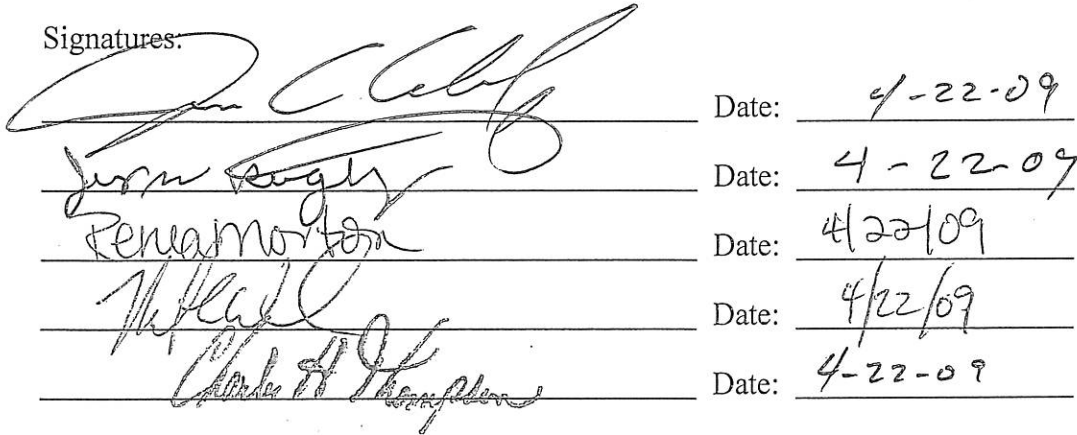 Signatures:
C Date: 4-22-09
Date: 4-22-09
Renea Morton Date: 4/22/09
Date: 4/22/09
Charles H Thompson Date: 4-22-09